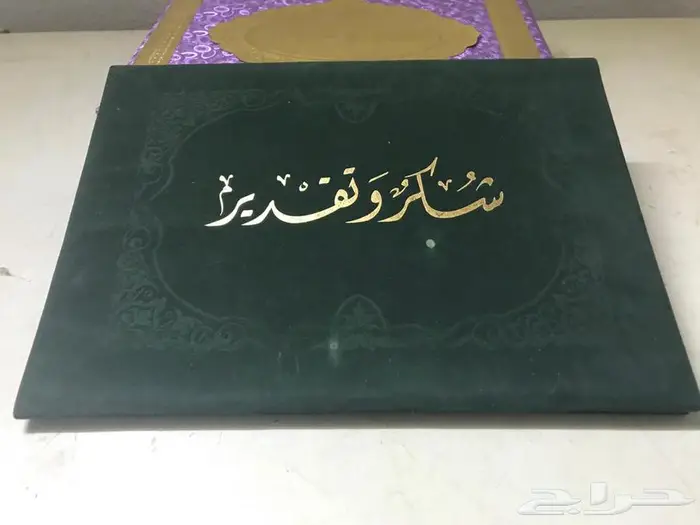 شُكرٌ وَتقدير
حراج